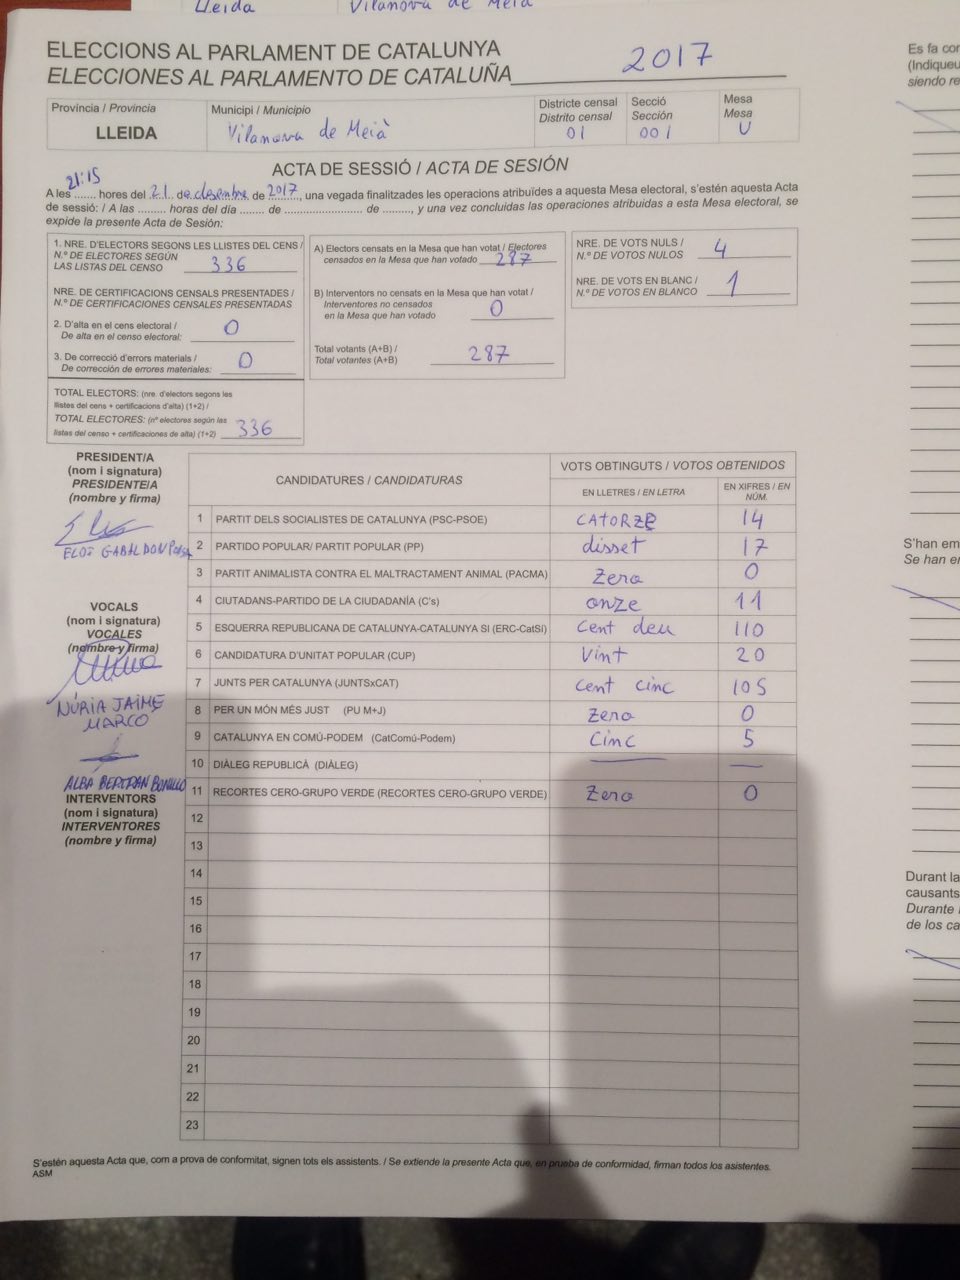 Lleida Vilanova de Meià
ELECCIONS AL PARLAMENT DE CATALUNYA
ELECCIONES AL PARLAMENTO DE CATALUÑA 2017
Província / Provincia
LLEIDA
Municipi / Municipio
Vilanova de Meià
Districte censal
Distrito censal
01
Secció
Sección
001
Mesa
Mesa
U
ACTA DE SESSIÓ / ACTA DE SESIÓN
21:15
A les ....... hores del 21 de desembre de 2017, una vegada finalitzades les operacions atribuïdes a aquesta Mesa electoral, s'estén aquesta Acta
de sessió: / A las ......... horas del día ........ de ......................... de ........, y una vez concluidas las operaciones atribuidas a esta Mesa electoral, se
expide la presente Acta de Sesión:
1. NRE. D'ELECTORS SEGONS LES LLISTES DEL CENS /
N.º DE ELECTORES SEGÚN
LAS LISTAS DEL CENSO 336
NRE. DE CERTIFICACIONS CENSALS PRESENTADES /
N.º DE CERTIFICACIONES CENSALES PRESENTADAS
2. D'alta en el cens electoral /
De alta en el censo electoral: 0
3. De correcció d'errors materials /
De corrección de errores materiales: 0
TOTAL ELECTORS: (nre. d'electors segons les
llistes del cens + certificacions d'alta) (1+2) /
TOTAL ELECTORES: (nº electores según las
listas del censo + certificaciones de alta) (1+2) 336
A) Electors censats en la Mesa que han votat / Electores
censados en la Mesa que han votado 287
B) Interventors no censats en la Mesa que han votat /
Interventores no censados
en la Mesa que han votado 0
Total votants (A+B) /
Total votantes (A+B) 287
NRE. DE VOTS NULS /
N.º DE VOTOS NULOS 4
NRE. DE VOTS EN BLANC /
N.º DE VOTOS EN BLANCO 1
PRESIDENT/A
(nom i signatura)
PRESIDENTE/A
(nombre y firma)
ELOI GABALDON
VOCALS
(nom i signatura)
VOCALES
(nombre y firma)
NÚRIA JAIME
MARCO
ALBA BERTRAN BONILLO
INTERVENTORS
(nom i signatura)
INTERVENTORES
(nombre y firma)
CANDIDATURES / CANDIDATURAS
VOTS OBTINGUTS / VOTOS OBTENIDOS
EN LLETRES / EN LETRA
EN XIFRES / EN
NÚM.
1 PARTIT DELS SOCIALISTES DE CATALUNYA (PSC-PSOE) CATORZE 14
2 PARTIDO POPULAR/ PARTIT POPULAR (PP) disset 17
3 PARTIT ANIMALISTA CONTRA EL MALTRACTAMENT ANIMAL (PACMA) Zero 0
4 CIUTADANS-PARTIDO DE LA CIUDADANÍA (C's) onze 11
5 ESQUERRA REPUBLICANA DE CATALUNYA-CATALUNYA SI (ERC-CatSí) Cent deu 110
6 CANDIDATURA D'UNITAT POPULAR (CUP) Vint 20
7 JUNTS PER CATALUNYA (JUNTSxCAT) Cent cinc 105
8 PER UN MÓN MÉS JUST (PU M+J) Zero 0
9 CATALUNYA EN COMÚ-PODEM (CatComú-Podem) Cinc 5
10 DIÀLEG REPUBLICÀ (DIÀLEG) — —
11 RECORTES CERO-GRUPO VERDE (RECORTES CERO-GRUPO VERDE) Zero 0
12
13
14
15
16
17
18
19
20
21
22
23
S'estén aquesta Acta que, com a prova de conformitat, signen tots els assistents. / Se extiende la presente Acta que, en prueba de conformidad, firman todos los asistentes.
ASM
Es fa con
(Indiqueu
siendo re
S'han em
Se han en
Durant la
causants
Durante l
de los ca